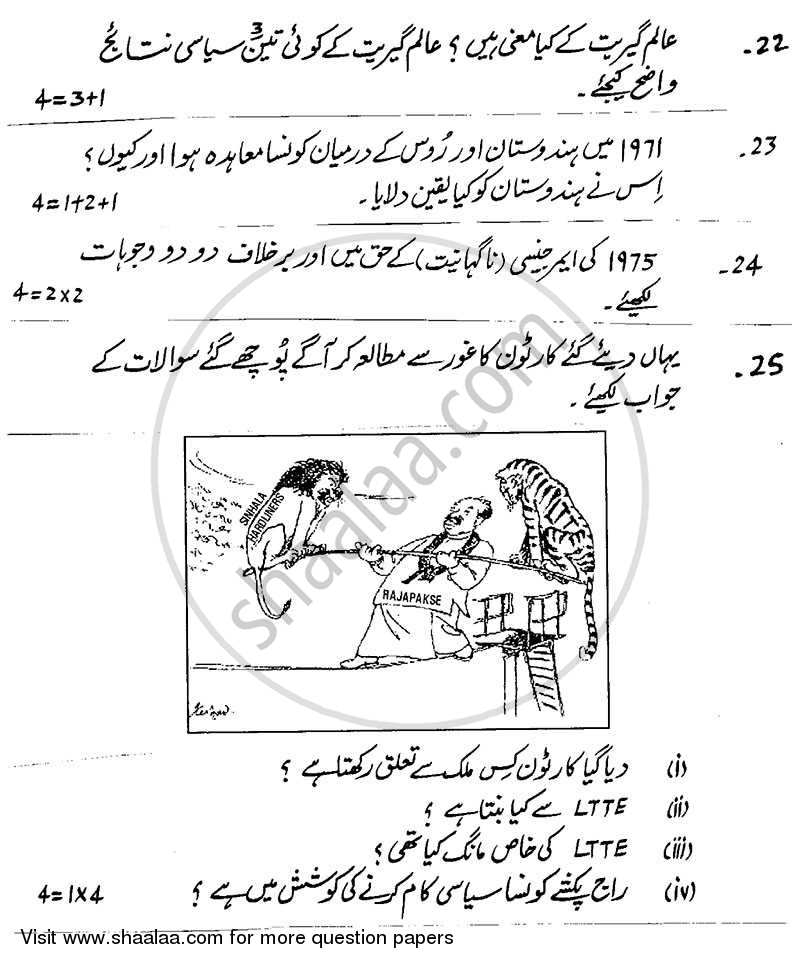 22- عالم گیریت کے کیا معنی ہیں؟ عالم گیریت کے کوئی تین 3 سیاسی نتائج
واضح کیجئے۔
4=3+1
23- 1971 میں ہندوستان اور رُوس کے درمیان کونسا معاہدہ ہوا اور کیوں؟
اِس نے ہندوستان کو کیا یقین دلایا۔
4=1+2+1
24- 1975 کی ایمرجنسی (ناگہانیت) کے حق میں اور برخلاف دو دو وجوہات
لکھیئے۔
4=2x2
25- یہاں دیئے گئے کارٹون کا غور سے مطالعہ کر آگے پُوچھے گئے سوالات کے
جواب لکھیئے۔
SINHALA
HARDLINERS
LTTE
RAJAPAKSE
(i) دیا گیا کارٹون کِس ملک سے تعلق رکھتا ہے؟
(ii) LTTE سے کیا بنتا ہے؟
(iii) LTTE کی خاص مانگ کیا تھی؟
(iv) راج پکشے کونسا سیاسی کام کرنے کی کوشش میں ہے؟
4=1x4
shaalaa.com
Visit www.shaalaa.com for more question papers